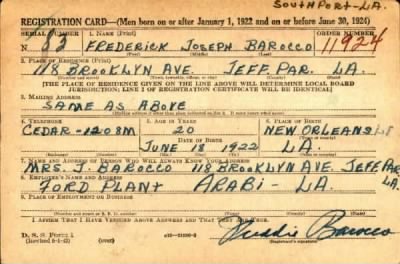 SOUTHPORT-LA.
REGISTRATION CARD—(Men born on or after January 1, 1922 and on or before June 30, 1924)
SERIAL NUMBER 1. NAME (Print) ORDER NUMBER
N 63 FREDERICK JOSEPH BAROCCO 11924
(First) (Middle) (Last)
2. PLACE OF RESIDENCE (Print)
118 BROOKLYN AVE. JEFF PAR. LA.
(Number and street) (Town, township, village, or city) (County) (State)
[THE PLACE OF RESIDENCE GIVEN ON THE LINE ABOVE WILL DETERMINE LOCAL BOARD
JURISDICTION; LINE 2 OF REGISTRATION CERTIFICATE WILL BE IDENTICAL]
3. MAILING ADDRESS
SAME AS ABOVE
4. TELEPHONE 5. AGE IN YEARS 6. PLACE OF BIRTH
CEDAR-1208M 20 NEW ORLEANS
DATE OF BIRTH
JUNE 18 1922 LA.
(Exchange) (Number) (Mo.) (Day) (Yr.) (State or country)
7. NAME AND ADDRESS OF PERSON WHO WILL ALWAYS KNOW YOUR ADDRESS
MRS. J. BAROCCO 118 BROOKLYN AVE. JEFF PAR
LA.
8. EMPLOYER'S NAME AND ADDRESS
FORD PLANT ARABI-LA.
9. PLACE OF EMPLOYMENT OR BUSINESS
(Number and street or R. F. D. number) (Town) (County) (State)
I AFFIRM THAT I HAVE VERIFIED ABOVE ANSWERS AND THAT THEY ARE TRUE.
D. S. S. Form 1
Freddie Barocco
(Registrant's signature)